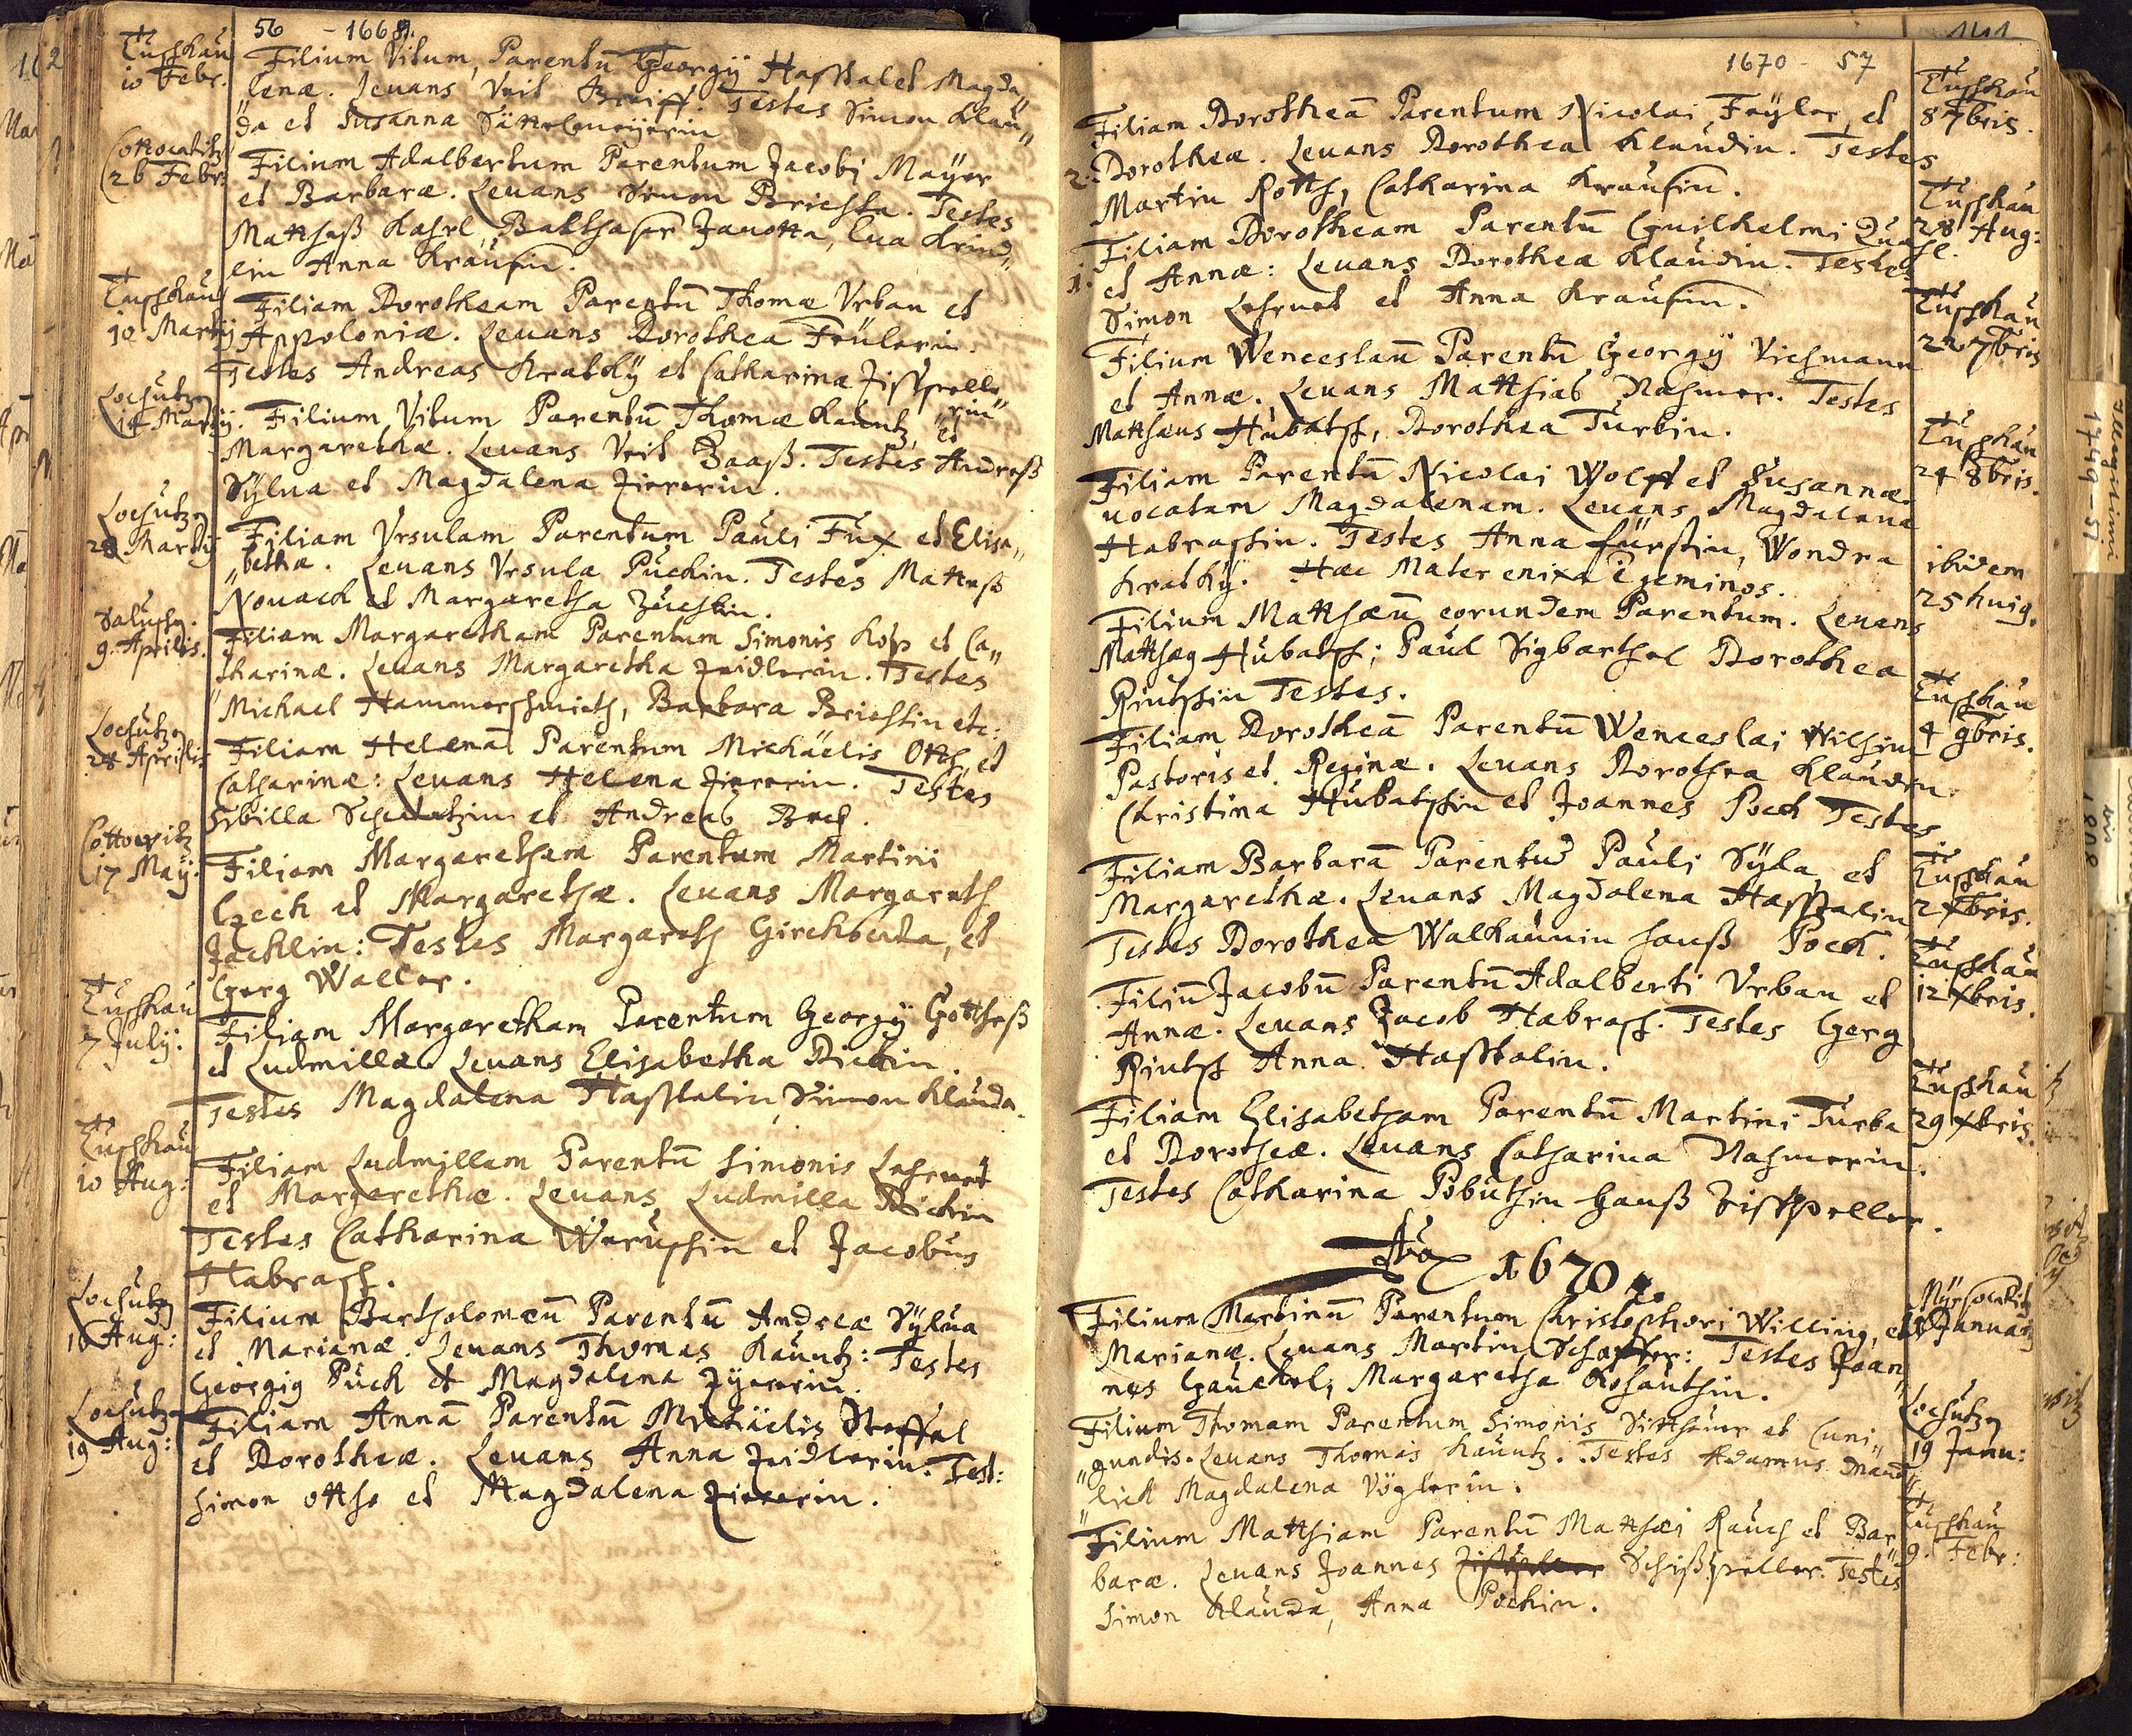 56 - 1669.
Tuschkau
10 Febr.
Filium Vitum, Parentū Georgÿ Hasstal et Magda„
lenæ. Levans Veit Breiff. Testes Simon Klau„
da et Susanna
Cottowitz
26 Febr:
Filium Adalbertum Parentum Jacobi Maÿer
et Barbaræ. Levans Simon Brichta. Testes
Mattheß Kahrl, Balthasar Janotta, Eva Krind„
lin Anna Krausin.
Tuschkau
10 Martÿ
Filiam Dorotheam Parentū Thomæ Vrban et
Appoloniæ. Levans Dorothea Feülerin.
Testes Andreas Kratkÿ et Catharina Zischpelle„
„rin
Lochutzn
14 Martÿ.
Filium Vitum Parentū Thomæ Kauntz, et
Margarethæ. Levans Veit Baaß. Testes Andreß
Sÿlua et Magdalena Ziererin.
Lochutzn
28 Martÿ
Filiam Vrsulam Parentum Pauli Fux et Elisa„
„bethæ. Levans Vrsula Puckin. Testes Matteß
Nouack et Margaretha
Saluschn.
9. Aprilis.
Filiam Margaretham Parentum Simonis Kop et Ca„
tharinæ. Levans Margaretha Zeidlerin. Testes
Michael Hammerschmieth, Barbara Brichtin etc:
Lochutzn
28 Aprilis
Filiam Helenā Parentum Michäelis Otth, et
Catharinæ: Levans Helena Ziererin. Testes
Sibilla Schmatzin et Andreas Bech.
Cottowitz
17 Maÿ.
Filiam Margaretham Parentum Martini
Czech et Margarethæ. Levans Margareth
Jacklin: Testes Margareth Girchouda, et
Gerg Waller.
Tuschkau
7 Julÿ:
Filiam Margaretham Parentum Georgÿ Gottheß
et Ludmillæ Levans Elisabetha Dietrin.
Testes Magdalena Hasstalin, Simon Klauda.
Tuschkau
10 Aug:
Filiam Ludmillam Parentū Simonis Lehrnet
et Margarethæ. Levans Ludmilla Dietrin
Testes Catharina Weruschin et Jacobus
Habrasch.
Lochutzn
16 Aug:
Filium Bartholomeū Parentū Andreæ Sÿlua
et Marianæ. Levans Thomas Kauntz: Testes
Georgig Puck et Magdalena Zÿererin.
Lochutzn
19 Aug:
Filiam Annā Parentū Michäelis Steffel
et Dorotheæ. Levans Anna Zeidlerin. Test:
Simon Otth et Magdalena Ziererin.
1670 - 57
Tuschkau
8 7bris.
Filiam Dorotheā Parentum Nicolai Feÿler, et
2. Dorotheæ. Levans Dorothea Klaudin. Testes
Martin Rotth, Catharina Krausin.
Tuschkau
28 Aug:
Filiam Dorotheam Parentū Guilhelmi
1. et Annæ: Levans Dorothea Klaudin. Testes
Simon Lehrnet et Anna Krausin.
Tuschkau
22 7bris
Filium Wenceslaū Parentū Georgÿ Vichmann
et Annæ. Levans Matthias Nahmer. Testes
Mattheus Hubatsch, Dorothea Turbin.
Tuschkau
24 8bris.
Filiam Parentū Nicolai Wolff et Susannæ
uocatam Magdalenam. Levans Magdalena
Habraschin. Testes Anna fürstin, Wondra
Kratkÿ. Hæc Mater enixa ē geminos.
ibidem
25 huig.
Filium Matthæū eorundem Parentum. Levans
Matthæg Hubatsch; Paul Sigbarthel Dorothea
Rintschin Testes.
Tuschkau
4 9bris.
Filiam Dorotheā Parentū Wenceslai Wilhim
Pastoris et Reginæ. Levans Dorothea Klaudin.
Christina Hubatschin et Joannes Pock Testes
Tuschkau
2 Xbris.
Filiam Barbarā Parentū Pauli Sÿla, et
Margarethæ. Levans Magdalena Hasstalin
Testes Dorothea Walkaunin Hanß Pock.
Tuschkau
12 Xbris.
Filiū Jacobū Parentū Adalberti Vrban et
Annæ. Levans Jacob Habrasch. Testes Gerg
Rintsch Anna Hasstalin.
Tuschkau
29 Xbris.
Filiam Elisabetham Parentū Martini Turba
et Dorotheæ. Levans Catharina Nahmerin.
Testes Catharina Pobuthin Hanß Zischpeller.
Aō 1670.
Januarÿ
Filium Martinū Parentum Christophori Willing, et
Marianæ. Levans Martin Schaffer: Testes Joan„
nes Gauckel, Margaretha Kohautin.
Lochutzn
19 Janu:
Filium Thomam Parentum Simonis et Cuni„
„gundis. Levans Thomas Kauntz. Testes Adamus
lick Magdalena Voglerin.
Tuschkau
9. Febr:
Filium Matthiam Parentū Matthæi Rauch et Bar„
baræ. Levans Joannes Schißpeller. Testes
Simon Klauda, Anna Pockin.
1749-51
1808